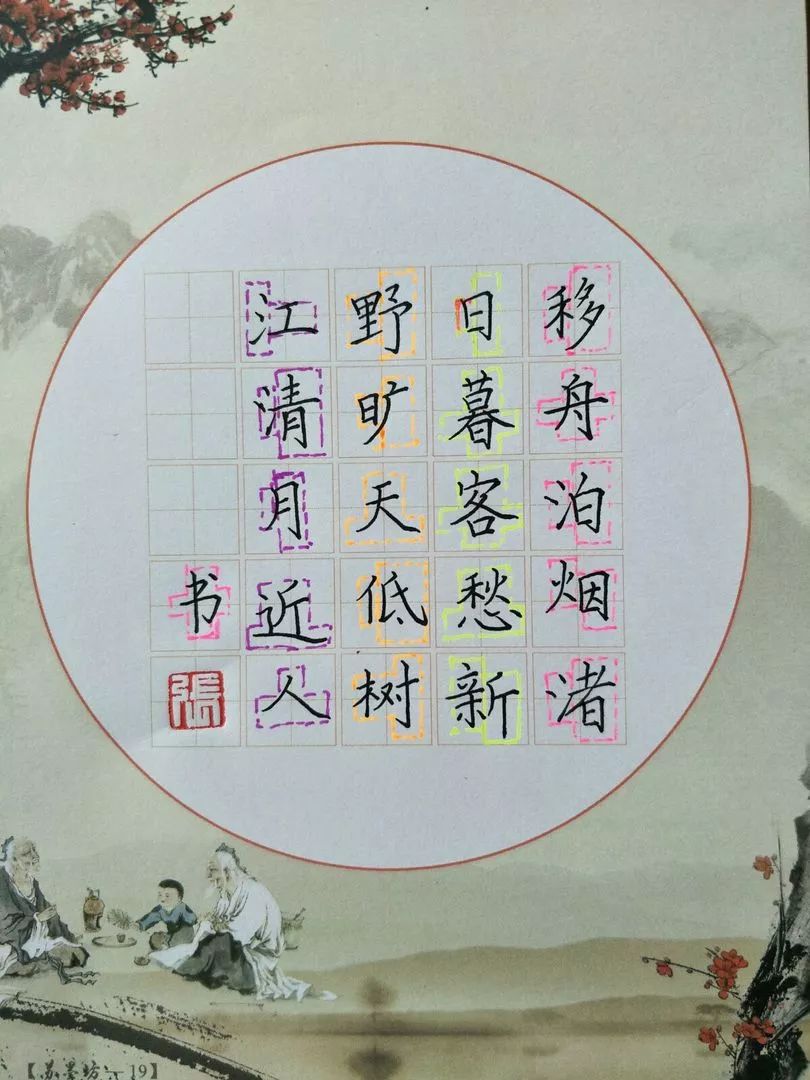 移舟泊烟渚
日暮客愁新
野旷天低树
江清月近人
书
張
【苏墨坊—19】